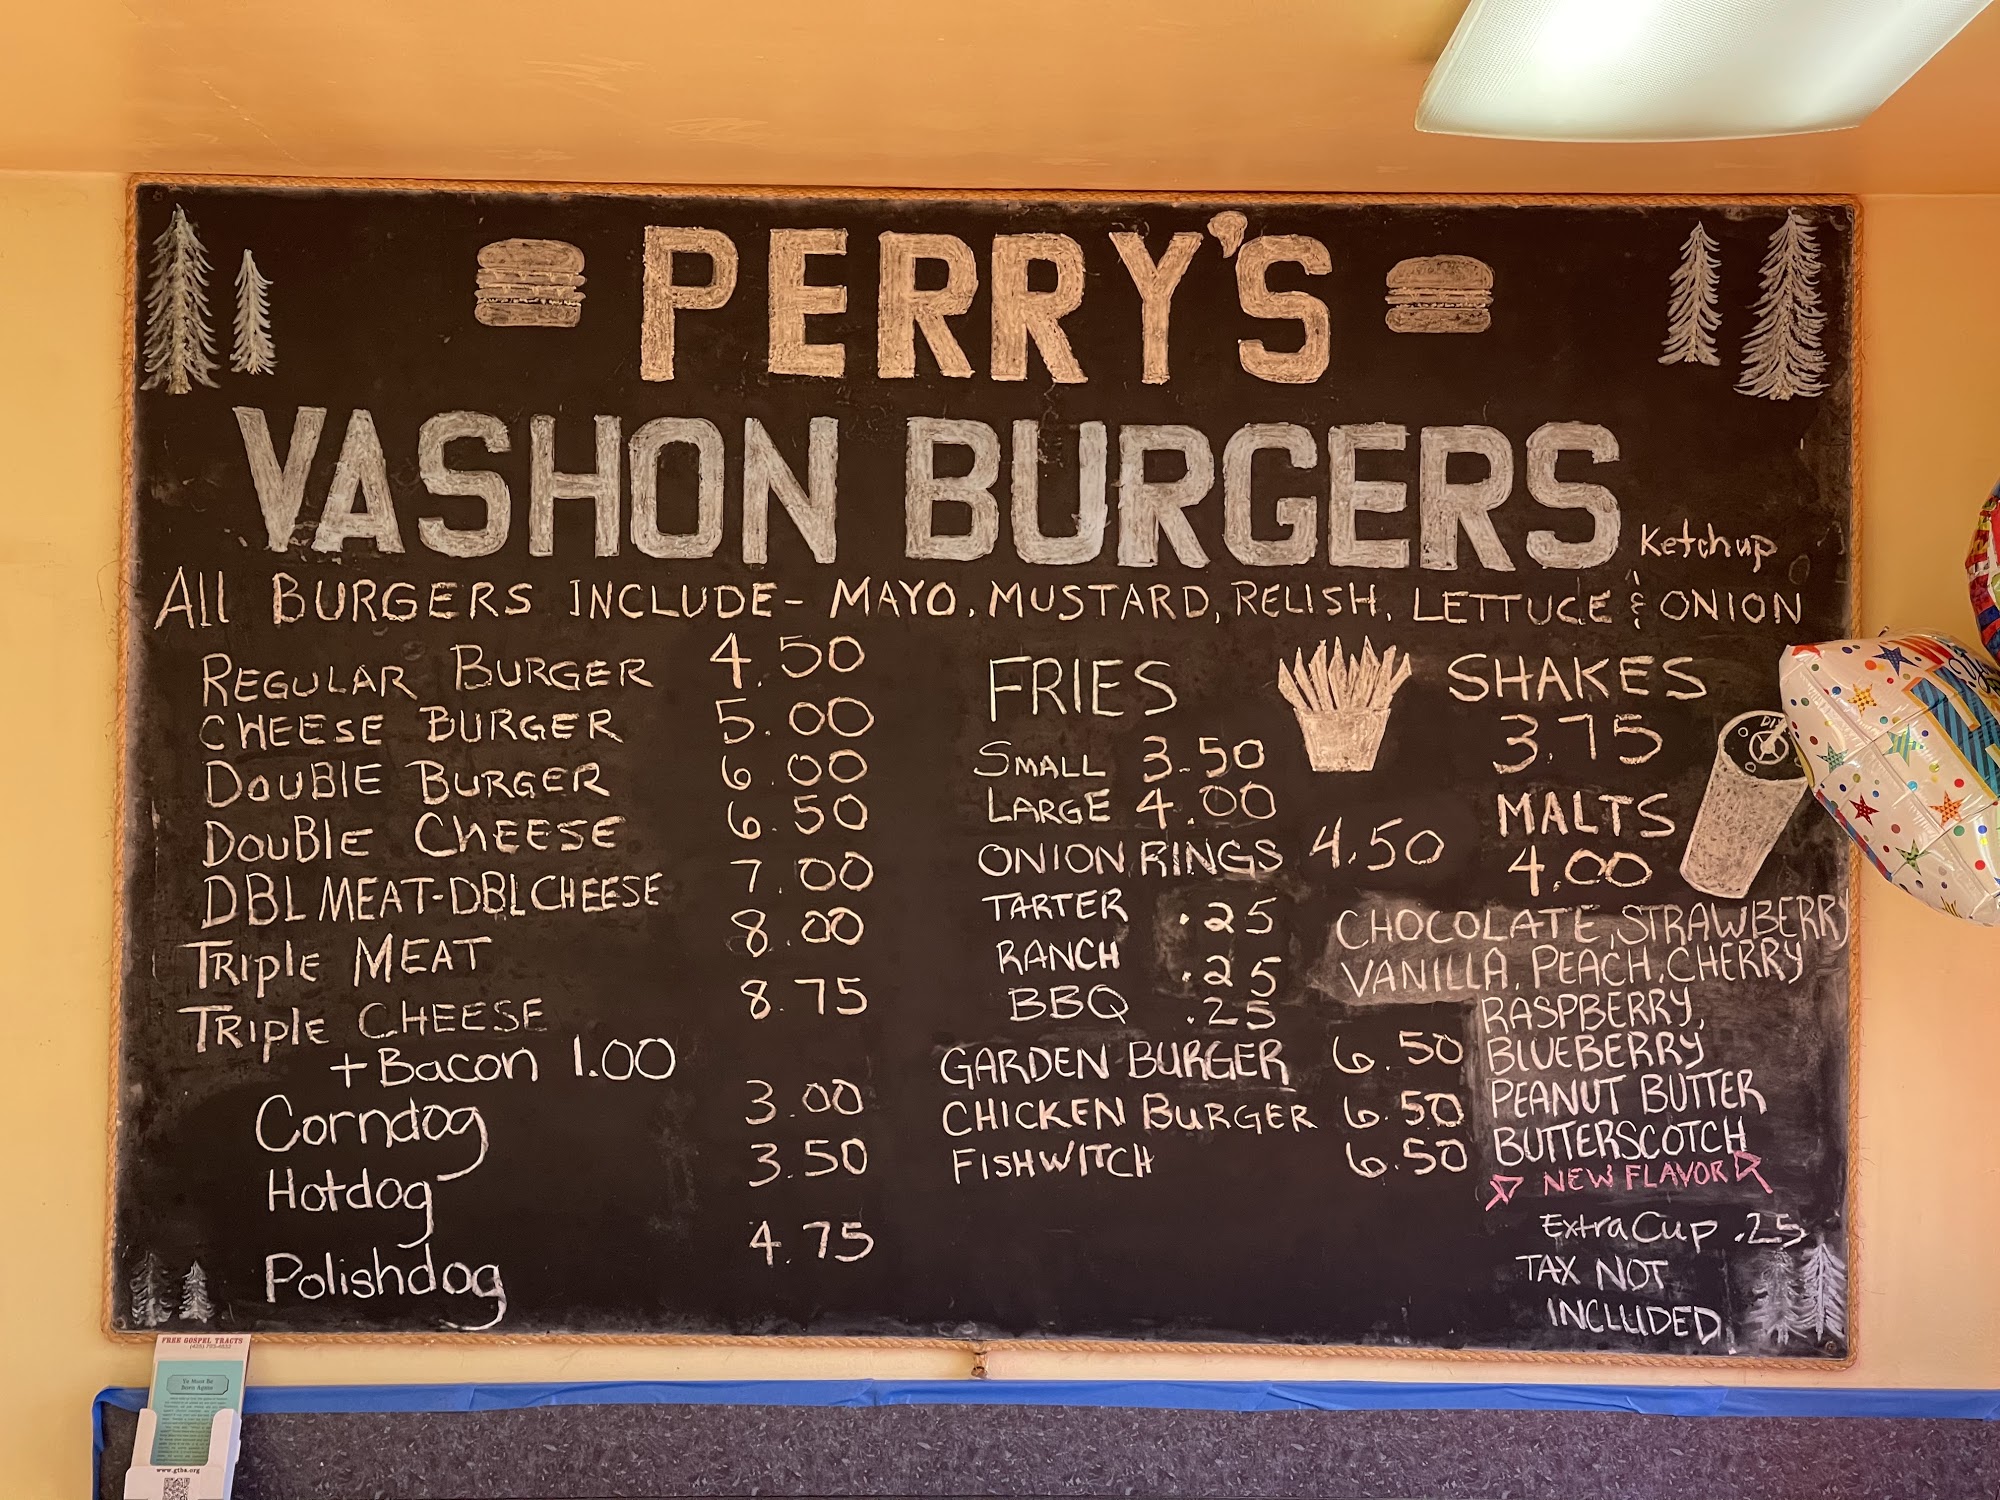 PERRY'S
VASHON BURGERS
Ketchup
All BURGERS INCLUDE- MAYO, MUSTARD, RELISH, LETTUCE & ONION
REGULAR BURGER 4.50
CHEESE BURGER 5.00
DOUBLE BURGER 6.00
DOUBLE CHEESE 6.50
DBL MEAT-DBL CHEESE 7.00
TRIPLE MEAT 8.00
TRIPLE CHEESE 8.75
+Bacon 1.00
Corndog 3.00
Hotdog 3.50
Polishdog 4.75
FRIES
SMALL 3.50
LARGE 4.00
ONION RINGS 4.50
TARTER .25
RANCH .25
BBQ .25
GARDEN BURGER 6.50
CHICKEN BURGER 6.50
FISHWITCH 6.50
SHAKES
3.75
MALTS
4.00
CHOCOLATE, STRAWBERRY
VANILLA, PEACH, CHERRY
RASPBERRY,
BLUEBERRY
PEANUT BUTTER
BUTTERSCOTCH
NEW FLAVOR
Extra Cup .25
TAX NOT
INCLUDED
FREE GOSPEL TRACTS
Ye Must Be
Born Again
www.gtba.org